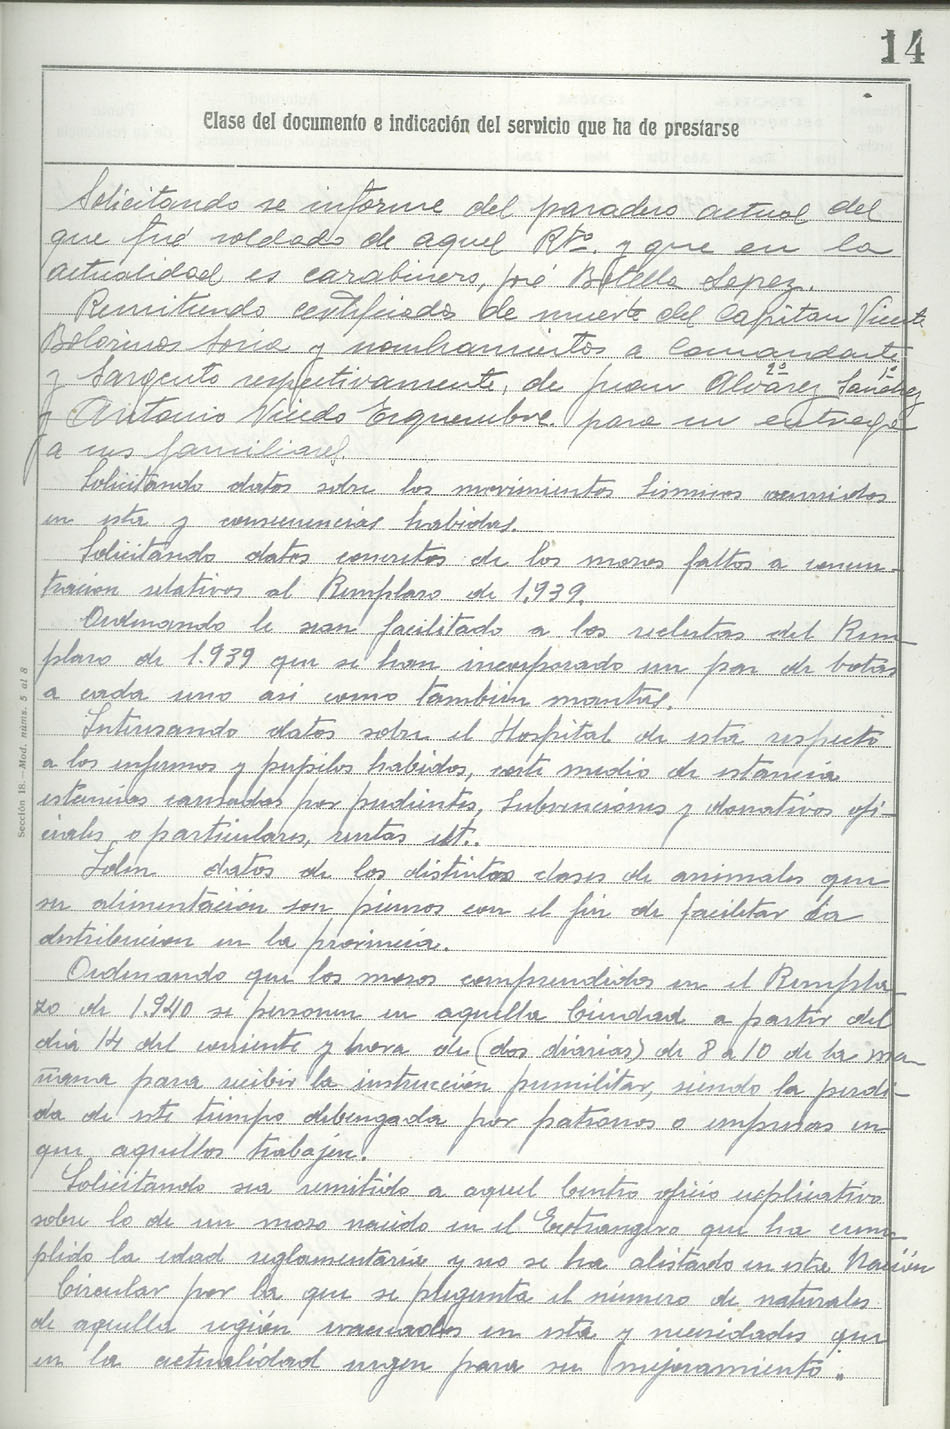 14
Clase del documento e indicación del servicio que ha de prestarse
Solicitando se informe del paradero actual del
que fué soldado de aquel Rtº. y que en la
actualidad es carabinero, José Botella Lopez.
Remitiendo certificados de muerte del Capitan Vicente
Bolorinos Soria y nombramientos a Comandante
y Sargento respectivamente, de Juan Alvarez Sanchez
2º 1º
y Antonio Erquembre. para su entrega
a sus familiares.
Solicitando datos sobre los movimientos sismicos ocurridos
en esta y consecuencias habidas.
Solicitando datos concretos de los mozos faltos a concen-
tracion relativos al Remplazo de 1.939.
Ordenando le sean facilitado a los reclutas del Rem-
plazo de 1.939 que se han incorporado un par de botas
a cada uno asi como tambien mantas.
Interesando datos sobre el Hospital de esta respecto
a los enfermos y pupilos habidos, coste medio de estancia
estancias causadas por pudientes, subvenciones y donativos ofi-
ciales o particulares, rentas ect..
Idem datos de los distintas clases de animales que
su alimentación son piensos con el fin de facilitar dia
distribucion en la provincia.
Ordenando que los mozos comprendidos en el Rempla-
zo de 1.940 se personen en aquella Ciudad a partir del
dia 14 del corriente y hora de (dos diarias) de 8 a 10 de la ma-
ñana para recibir la instrucción premilitar, siendo la perdi-
da de este tiempo debengada por patronos o empresas en
que aquellos trabajen.
Solicitando sea remitido a aquel Centro oficio explicativo
sobre lo de un mozo nacido en el Extrangero que ha cum-
plido la edad reglamentaria y no se ha alistado en esta Nación
Circular por la que se pregunta el número de naturales
de aquella región evacuados en esta y necesidades que
en la actualidad urgen para su mejoramiento.
Sección 18.—Mod. núms. 5 al 8